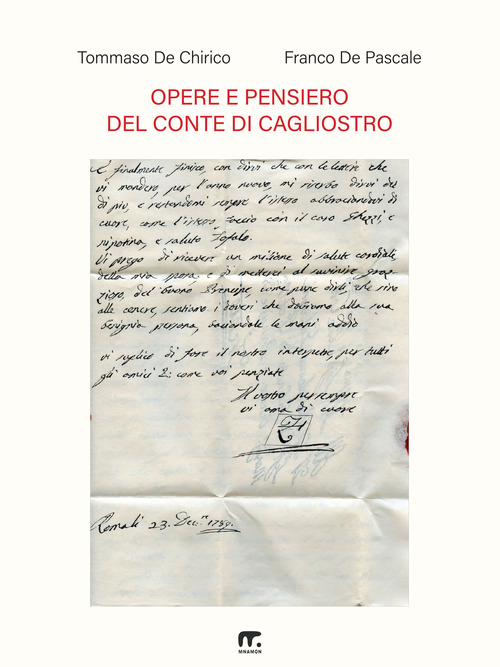 Tommaso De Chirico Franco De Pascale
OPERE E PENSIERO
DEL CONTE DI CAGLIOSTRO
E finalmente finisco, con dirvi che con le lettere che
vi manderò, per l'anno nuovo, mi riserbo dirvi
di più, e restandomi sempre l'istesso abbracciandovi di
cuore, come l'istesso faccio con il caro e
nipotina, e saluto
Vi prego di ricevere un milione di salute cordiale
della mia e di metterci al
del buono Principe come pure dirli, che sino
alle cenere, sentiamo i doveri che doviamo alla sua
benignia persona, baciandole le mani addio
vi replico di fare il nostro interprete, per tutti
gli amici come voi penziate
Il vostro per sempre
vi ama di cuore
Roma li 23. 1789.
MNAMON